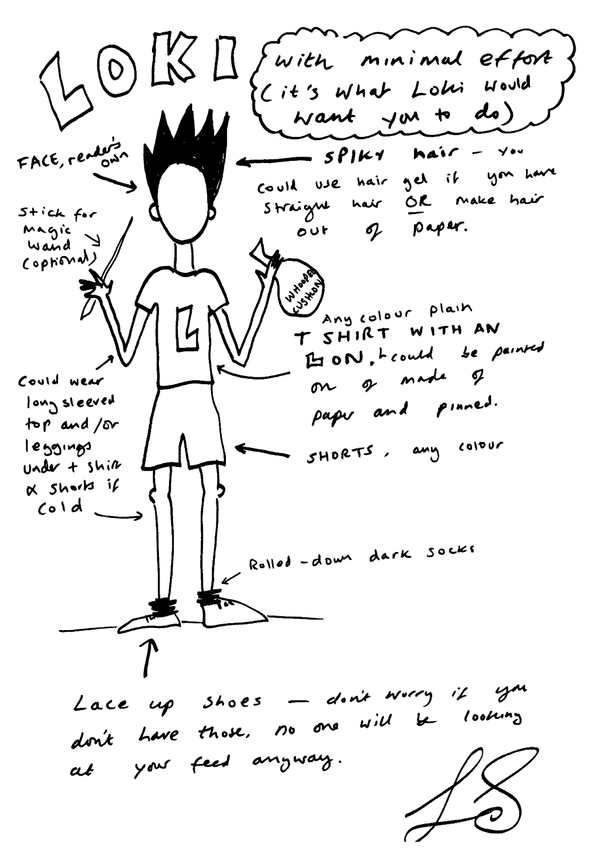 LOKI
with minimal effort
(it's what Loki would
want you to do)
FACE, reader's
own
SPIKY hair – you
could use hair gel if you have
straight hair OR make hair
out of paper.
Stick for
magic
wand
(optional)
WHOOPEE
CUSHION
L
Any colour plain
T SHIRT WITH AN
L ON, L could be painted
on of made of
paper and pinned.
Could wear
long sleeved
top and/or
leggings
under t shirt
& shorts if
cold
SHORTS, any colour
Rolled-down dark socks
Lace up shoes – don't worry if you
don't have those, no one will be looking
at your feed anyway.
LS